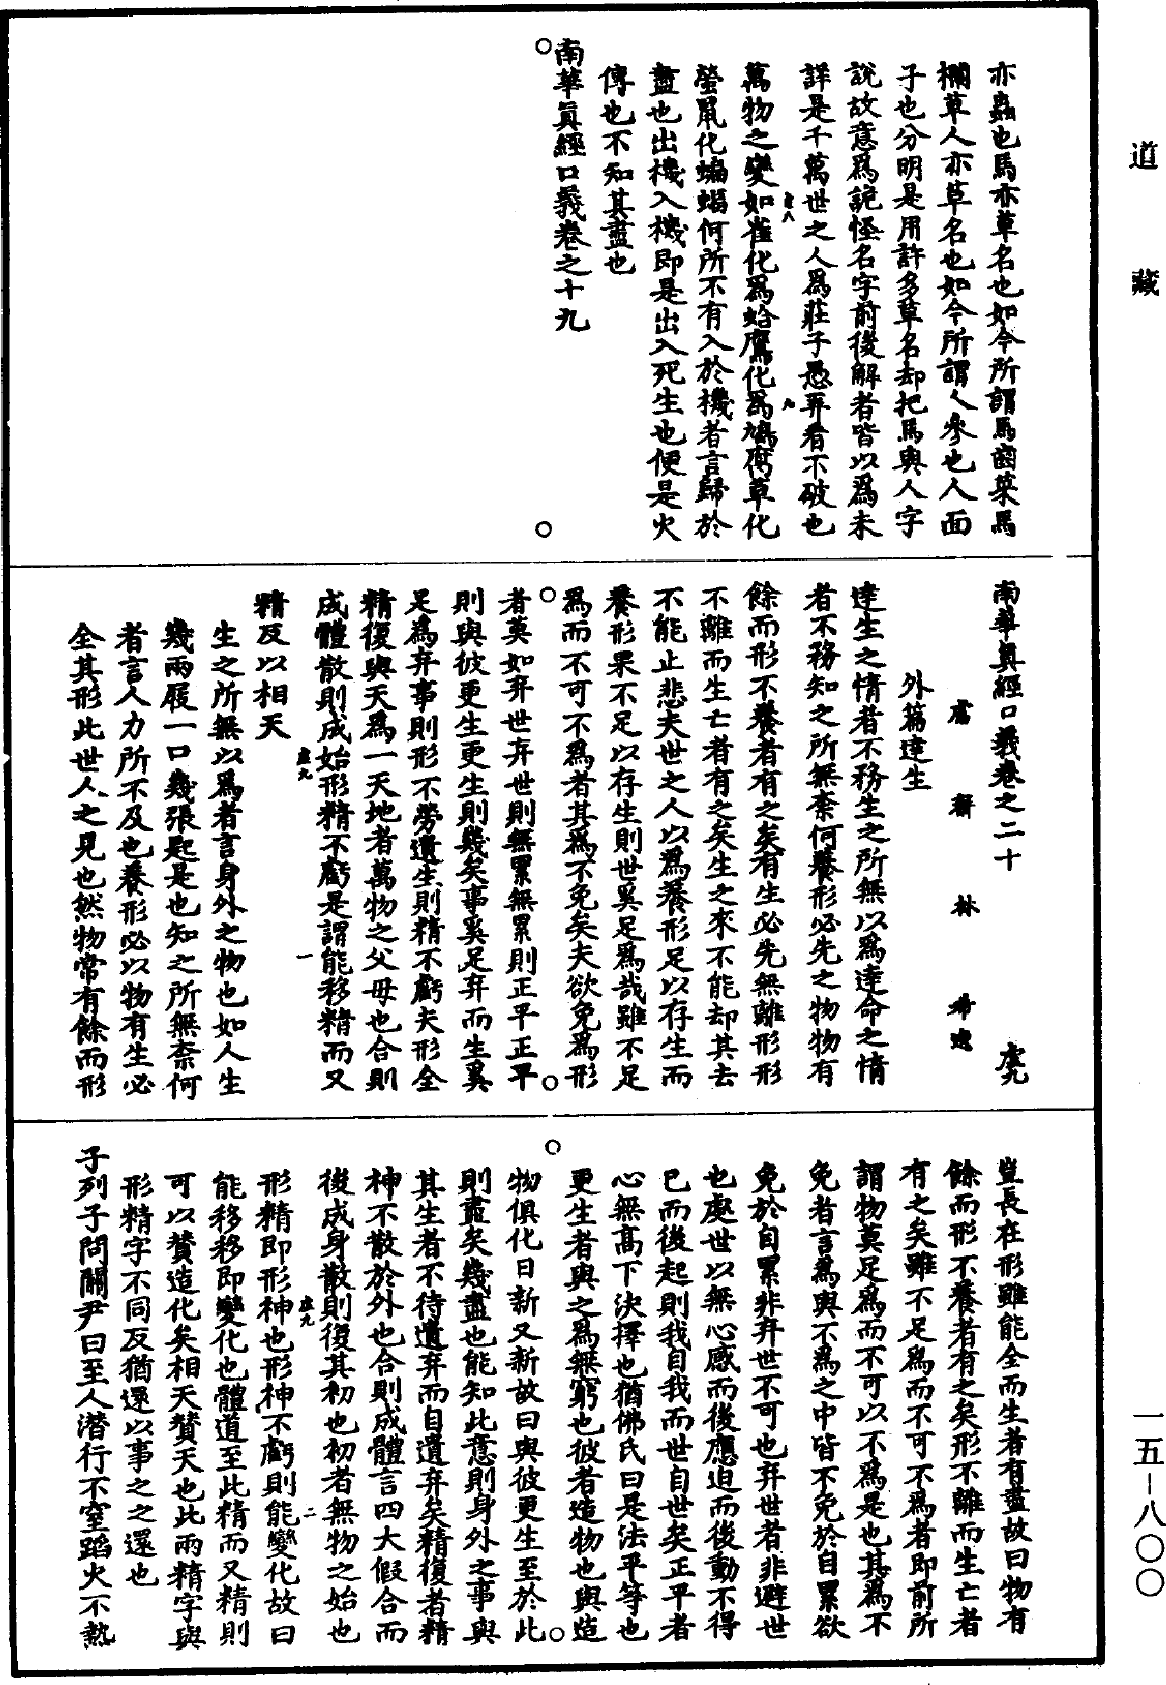 道藏
亦蟲也馬亦草名也如今所謂馬齒菜馬
欄草人亦草名也如今所謂人參也人面
子也分明是用許多草名却把馬與人字
說故意為詭怪名字前後解者皆以為未
詳是千萬世之人為莊子愚弄看不破也
萬物之變如雀化為蛤鷹化為鳩腐草化
螢鼠化蝙蝠何所不有入於機者言歸於
盡也出機入機即是出入死生也便是火
傳也不知其盡也
南華真經口義卷之十九
南華真經口義卷之二十
鬳齋林希逸
外篇達生
達生之情者不務生之所無以為達命之情
者不務知之所無柰何養形必先之物物有
餘而形不養者有之矣有生必先無離形形
不離而生亡者有之矣生之來不能却其去
不能止悲夫世之人以為養形足以存生而
養形果不足以存生則世奚足為哉雖不足
為而不可不為者其為不免矣夫欲免為形
者莫如弃世弃世則無累無累則正平正平
則與彼更生更生則幾矣事奚足弃而生奚
足為弃事則形不勞遺生則精不虧夫形全
精復與天為一天地者萬物之父母也合則
成體散則成始形精不虧是謂能移精而又
精反以相天
生之所無以為者言身外之物也如人生
幾兩屐一口幾張匙是也知之所無柰何
者言人力所不及也養形必以物有生必
全其形此世人之見也然物常有餘而形
豈長在形雖能全而生者有盡故曰物有
餘而形不養者有之矣形不離而生亡者
有之矣雖不足為而不可不為者即前所
謂物莫足為而不可以不為是也其為不
免者言為與不為之中皆不免於自累欲
免於自累非弃世不可也弃世者非避世
也處世以無心感而後應迫而後動不得
已而後起則我自我而世自世矣正平者
心無高下決擇也猶佛氏曰是法平等也
更生者與之為無窮也彼者造物也與造
物俱化日新又新故曰與彼更生至於此
則盡矣幾盡也能知此意則身外之事與
其生者不待遺弃而自遺弃矣精復者精
神不散於外也合則成體言四大假合而
後成身散則復其初也初者無物之始也
形精即形神也形神不虧則能變化故曰
能移移即變化也體道至此精而又精則
可以贊造化矣相天贊天也此兩精字與
形精字不同反猶還以事之之還也
子列子問關尹曰至人潛行不窒蹈火不熱
一五－八〇〇